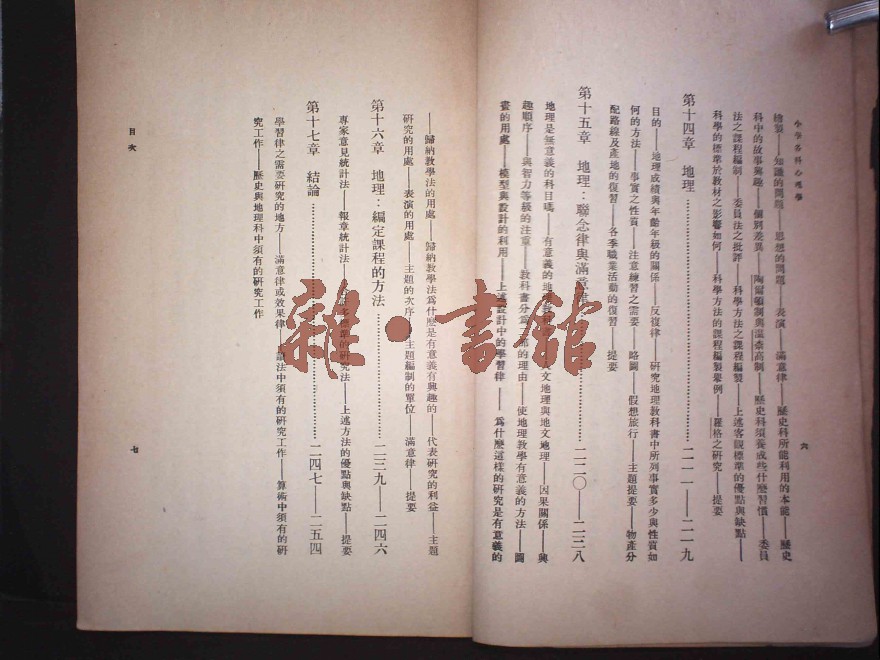 小學各科心理學
六
繪製——知識的問題——思想的問題——表演——滿意律——歷史科所能利用的本能——歷史
科中的故事興趣——個別差異——陶爾頓制與溫奈高制——歷史科須養成些什麼習慣——委員
法之課程編制——委員法之批評——科學方法之課程編製——上述客觀標準的優點與缺點——
科學的標準於教材之影響如何——科學方法的課程編製舉例——羅格之研究——提要
第十四章 地理……二一一——二一九
目的——地理成績與年齡年級的關係——反復律——研究地理教科書中所列事實多少與性質如
何的方法——事實之性質——注意練習之需要——略圖——假想旅行——主題提要——物產分
配路線及產地的復習——各季職業活動的復習——提要
第十五章 地理：聯念律與滿意律……二二〇——二三八
地理是無意義的科目嗎——有意義的地理 文地理與地文地理——因果關係——興
趣順序——與智力等級的注重——教科書分 部的理由——使地理教學有意義的方法——圖
畫的用處——模型與設計的利用——上述設計中的學習律——爲什麼這樣的研究是有意義的
——歸納教學法的用處——歸納教學法爲什麼是有意義有興趣的——代表研究的利益——主題
研究的用處——表演的用處——主題的次序——主題編制的單位——滿意律——提要
第十六章 地理：編定課程的方法……二三九——二四六
專家意見統計法——報章統計法—— 多標準的研究法——上述方法的優點與缺點——提要
第十七章 結論……二四七——二五四
學習律之需要研究的地方——滿意律或效果律—— 讀法中須有的研究工作——算術中須有的研
究工作——歷史與地理科中須有的研究工作
目次
七
雜·書館